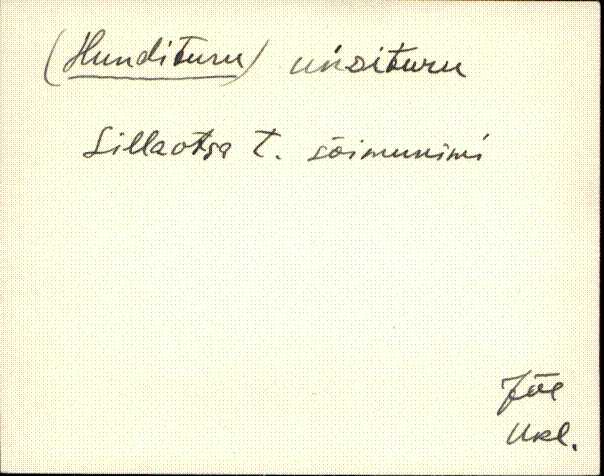 (Hundituru) uńdituru
Sillaotsa t. sõimunimi
Jõe
Ukl.